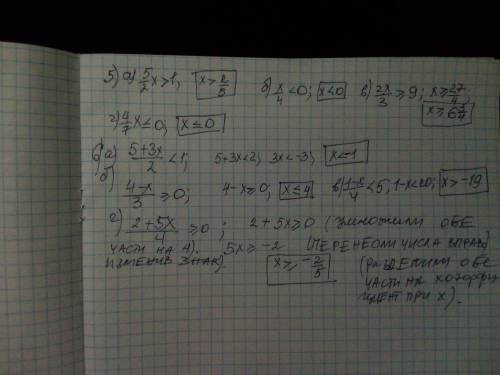 5) а) 5/2 x > 1; x > 2/5 б) x/4 < 0; x < 0 в) 2x/3 ≥ 9; x ≥ 27/4
x ≥ 6 3/4
г) 4/7 x ≤ 0; x ≤ 0
6) а) (5+3x)/2 < 1; 5+3x < 2; 3x < -3; x < -1
б) (4-x)/3 ≥ 0; 4-x ≥ 0; x ≤ 4 в) (1-x)/4 < 5, 1-x < 20; x > -19
г) (2+5x)/4 ≥ 0; 2+5x ≥ 0 (умножили обе
части на 4). 5x ≥ -2 (перенесли числа вправо
изменив знак) x ≥ -2/5 (разделили обе
части на коэффи
циент при x).